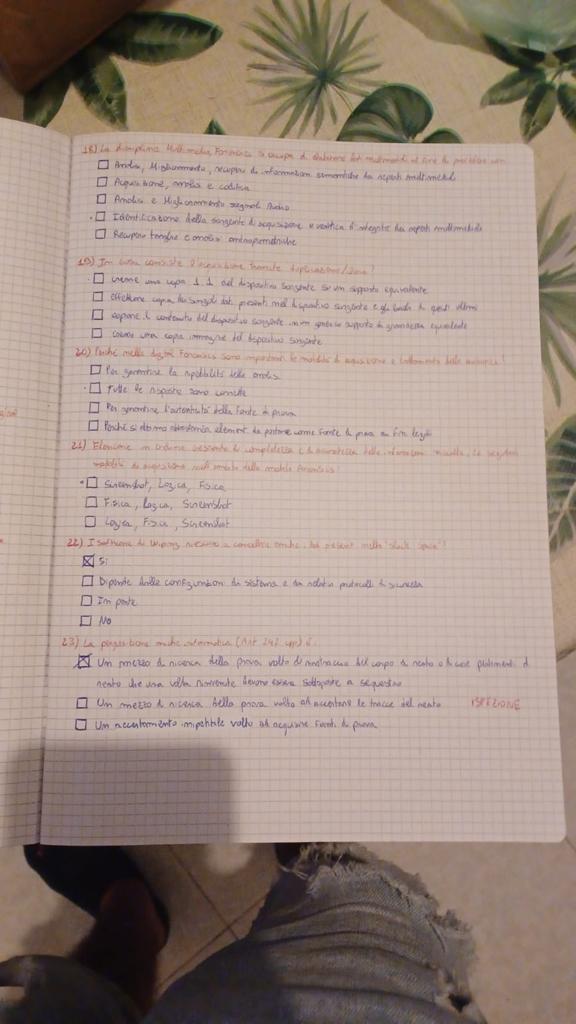 18) La disciplina Multimedia Forensics si occupa di elaborare dati multimediali al fine di procedere con
Analisi, Miglioramento, recupero di informazioni semantiche da reperti multimediali
Acquisizione, analisi e codifica
Analisi e Miglioramento segnali Audio
Identificazione della sorgente di acquisizione e verifica d'integrità dei reperti multimediali
Recupero targhe e analisi antropometriche
19) In cosa consiste l'acquisizione tramite duplicazione/clone?
Creare una copia 1:1 del dispositivo sorgente su un supporto equivalente
Effettuare copia dei singoli dati presenti nel dispositivo sorgente e gli hash di questi ultimi
copiare il contenuto del dispositivo sorgente in un supporto di grandezza equivalente
Creare una copia immagine del dispositivo sorgente
20) Perché nella digital Forensics sono importanti le modalità di acquisizione e trattamento delle evidenze?
Per garantire la ripetibilità delle analisi
Tutte le risposte sono corrette
Per garantire l'autenticità della Fonte di prova
Perché si devono element da portare come Fonte di prova ai fini legali
21) Elencare in ordine crescente di completezza e di accuratezza delle informazioni le seguenti
modalità di acquisizione nell'ambito della mobile Forensics:
Screenshot, Logica, Fisica
Fisica, Logica, Screenshot
Logica, Fisica, Screenshot
22) I software di Wiping riescono a cancellare anche dati presenti nello "slack space"?
Si
Dipende dalle configurazioni di sistema e da relativi protocolli di sicurezza
In parte
No
23) La perquisizione anche informatica (Art 247 cpp) è:
Un mezzo di ricerca della prova volto di rintracciare del corpo di reato o di cose pertinenti il
reato che una volta rinvenute devono essere sottoposte a sequestro
Un mezzo di ricerca della prova volto ad accertare le tracce del reato ISPEZIONE
Un accertamento irripetibile volto ad acquisire Fonti di prova